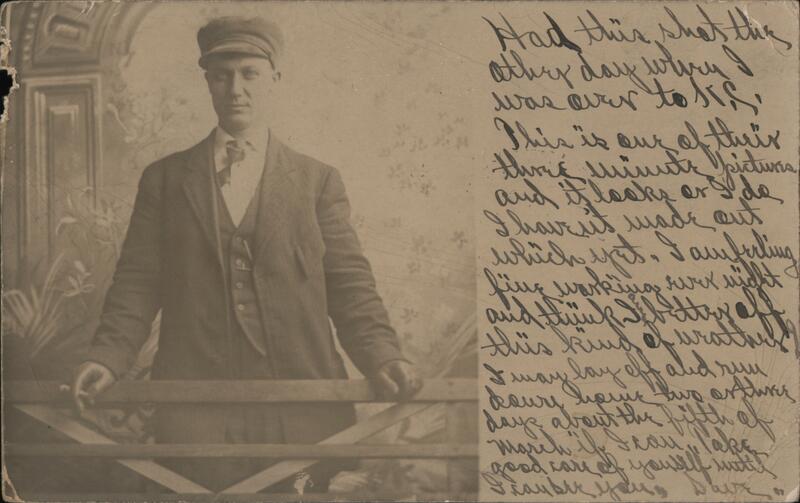 Had this shot the
other day when I
was over to K.C.
This is one of their
three minute pictures
and it looks or I do
I havent made out
which yet. I am feeling
fine working ever night
and think I better off
this kind of weather
I may lay off and run
down home two or three
days about the fifth of
March if I can. Take
good care of yourself until
I can see you. Dave